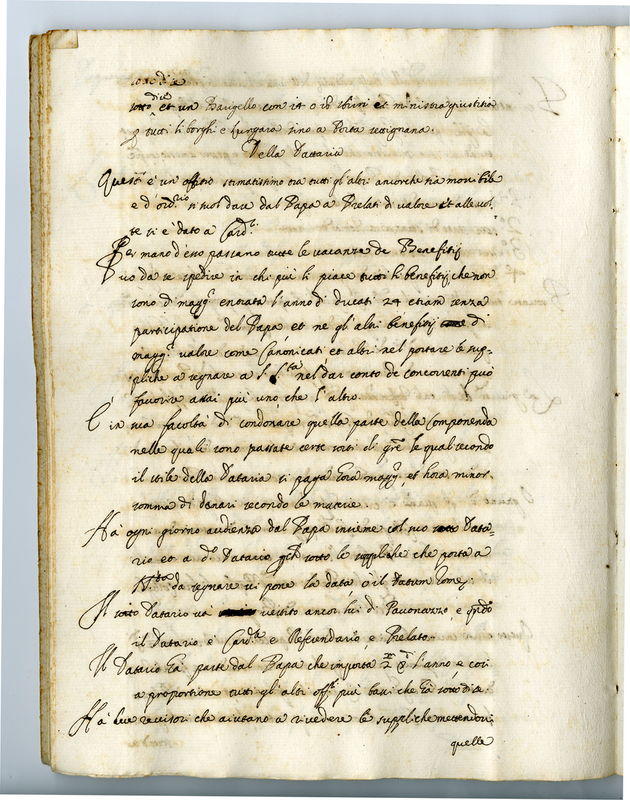 sotto et un Bargello con 14 o 15 sbirri et ministra giustitia
tutti li borghi e lungara sino a Porta settignana.
Della Dattaria
Questo è un offitio stimatissimo tra tutti gl'altri ancorche sia movibile
e d'ord.rio si suol dare dal Papa a Prelati di valore et alle vol-
te si è dato a Card.li
Per mano d'esso passano tutte le vacanze de Benefitij
Può da se spedire in chi più li piace tutti li benefitij, che non
sono di magg.r entrata l'anno di ducati 24 etiam senza
participatione del Papa et ne gl'altri benefitij di
magg.r valore come Canonicati et altri nel portare le sup-
pliche a segnare a S. S.tà nel dar conto de concorrenti può
favorire assai più uno che l'altro.
E in sua facoltà di condonare quella parte della Componenda
nelle quali sono passate certe sorti di gr̃e le quali secondo
il stile della Dataria si paga hora magg.r et hora minor
somma di denari secondo le materie.
Hà ogni giorno audienza dal Papa insieme col suo sotto Data-
rio et a d.o Datario sotto le suppliche che porta a
N. S.re da segnare vi pone la data ò il Datum Romę.
Il sotto Datario và vestito ancor lui di Pavonazzo, e quãdo
il Datario è Card.le è Referendario, e Prelato.
Il Datario hà parte dal Papa che importa l'anno, e così
a proportione tutti gl'altri off.li più bassi che hà sotto di se.
Hà due revisori che aiutano a rivedere le suppliche mettendovi
quelle